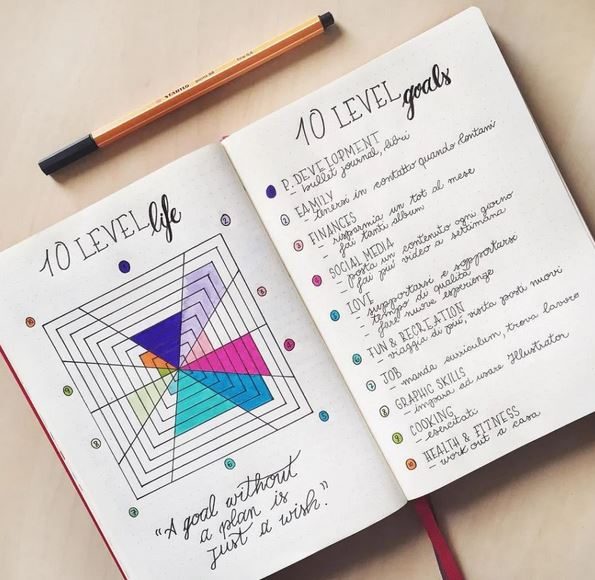 STABILO point 88 fine 0,4
10 LEVEL life
1
2
3
4
5
6
7
8
9
10
"A goal without
a plan is
just a wish."
10 LEVEL goals
1 P. DEVELOPMENT
- bullet journal, libri
2 FAMILY
- tenersi in contatto quando lontani
3 FINANCES
- risparmia un tot al mese
- fai tanti album
4 SOCIAL MEDIA
- posta un contenuto ogni giorno
- fai più video a settimana
5 LOVE
- supportarsi e sopportarsi
- tempo di qualità
- fare nuove esperienze
6 FUN & RECREATION
- viaggia di più, visita posti nuovi
7 JOB
- manda curriculum, trova lavoro
8 GRAPHIC SKILLS
- impara ad usare Illustrator
9 COOKING
- esercitati
10 HEALTH & FITNESS
- work out a casa